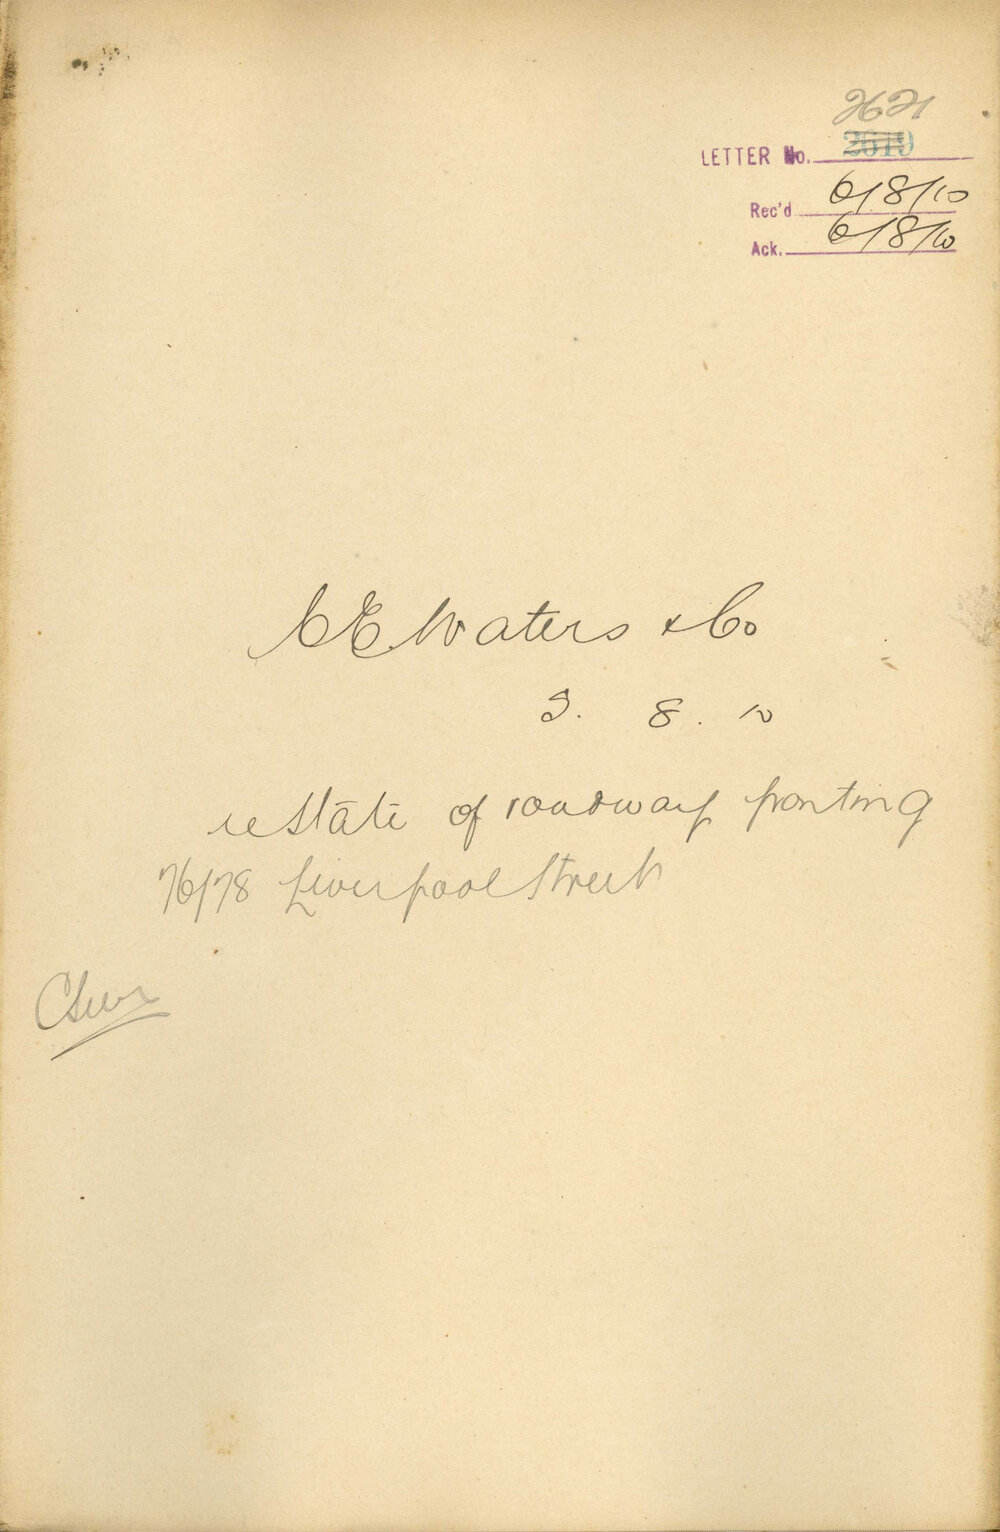 2621
LETTER No. 2619
Rec'd 6/8/10
Ack. 6/8/10
C E Waters & Co
3. 8. 10
re State of roadway fronting
76/78 Liverpool Street